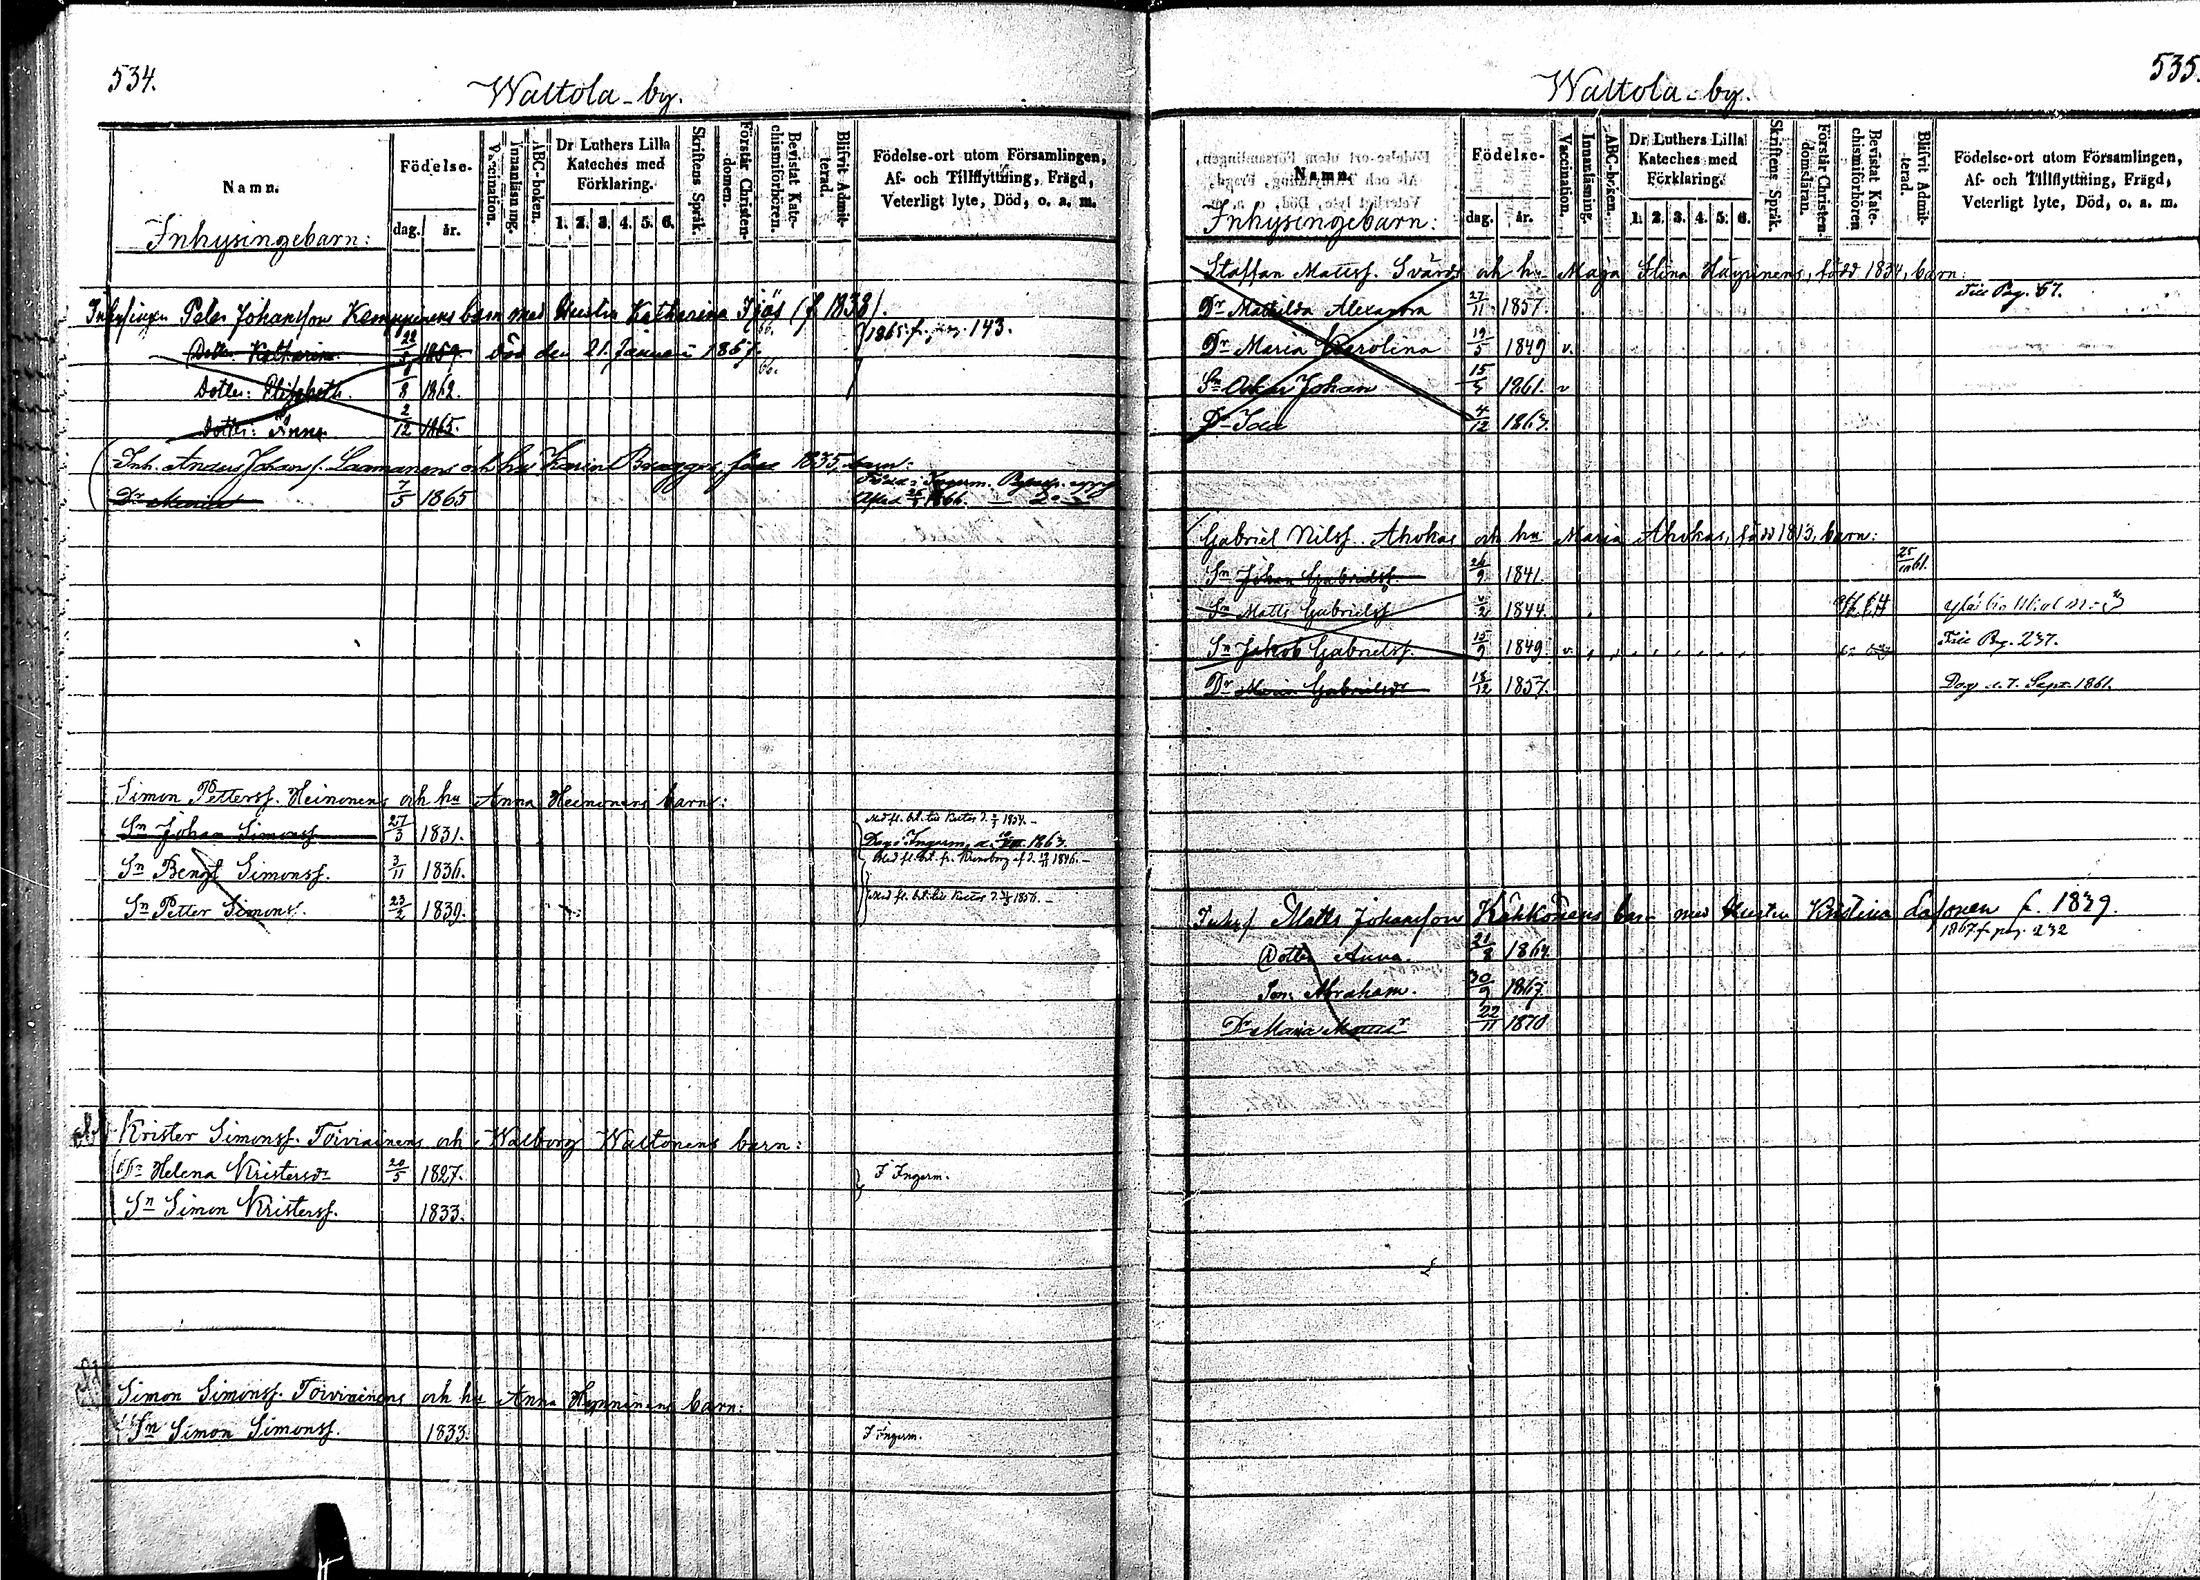 534.
Waltola-by.
Namn.
Födelse-
dag. år.
Vaccination.
Innanläsning.
ABC-boken.
Dr Luthers Lilla Kateches med Förklaring.
1. 2. 3. 4. 5. 6.
Skriftens Språk.
Förstår Christendomen.
Bevistat Katechismiförhören.
Blifvit Admitterad.
Födelse-ort utom Församlingen,
Af- och Tillflyttning, Frägd,
Veterligt lyte, Död, o. a. m.
Inhysingebarn:
Inhysingen Peter Johansson Kemppinens barn med Hustru Katharina (f 1838).
1865 f. pag. 143.
Dotter Katharina 22/5 1859. Död den 21. Januari 1867.
Dotter: Elisabeth. 1862.
66.
Dotter: Anna 2/12 1865.
Inh. Anders Johanss. och hu 1835, barn:
Dr Maria 7/5 1865
Simon Petterss. Heinonens och hu Anna Heinonens barn:
Sn Johan Simonss. 27/3 1831.
1863.
Sn Bengt Simonss. 3/11 1836.
Sn Petter Simonss. 23/2 1839.
Krister Simonss. Toiviainens och Walborg Waltonens barn:
Dr Helena Kristersdr 20/5 1827. I Ingerm.
Sn Simon Kristerss. 1833.
Simon Simonss. Toiviainens och hu Anna barn:
Sn Simon Simonss. 1833. I Ingerm.
535.
Waltola-by.
Namn.
Födelse-
dag. år.
Vaccination.
Innanläsning.
ABC-boken.
Dr Luthers Lilla Kateches med Förklaring.
1. 2. 3. 4. 5. 6.
Skriftens Språk.
Förstår Christendomsläran.
Bevistat Katechismiförhören
Blifvit Admitterad.
Födelse-ort utom Församlingen,
Af- och Tillflyttning, Frägd,
Veterligt lyte, Död, o. a. m.
Inhysingebarn:
Staffan Matss. Svärds och hu Maja Stina Häyrinens, född 1834, barn:
Till Pag. 67.
Dr Mathilda Alexandra 27/11 1857.
Dr Maria Karolina 19/5 1849 v.
Sn Johan 1861. v
Dr Ida 4/12 1863.
Gabriel Nilss. Ahokas och hu Maria Ahokas, född 1813, barn:
Sn Johan Gabrielss. 1841.
Sn Matts Gabrielss. 1844.
Sn Jakob Gabrielss. 15/9 1849. v. Till Pag. 237.
Dr Maria Gabrielsdr 18/12 1857. d. 7. Sept. 1861.
Matts Johansson Kähkönens barn med Hustru Kristina f. 1839.
1867 f. pag. 232
Dotter Anna. 21/8 1864.
Son: Abraham. 30/9 1867.
Dr Maria 22/11 1870